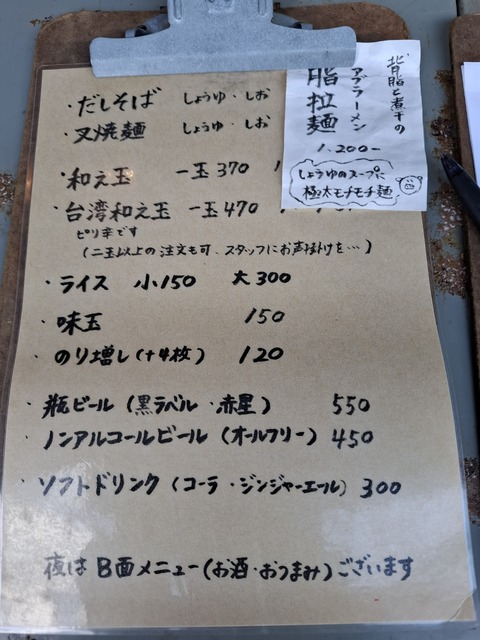 ・だしそば しょうゆ・しお
・叉焼麺 しょうゆ・しお
背脂と煮干の
アブラーメン
脂拉麺
1,200-
しょうゆのスープに
極太モチモチ麺
・和え玉 一玉370
・台湾和え玉 一玉470
ピリ辛です
(二玉以上の注文も可、スタッフにお声掛けを…)
・ライス 小150 大300
・味玉 150
・のり増し(+4枚) 120
・瓶ビール(黒ラベル・赤星) 550
・ノンアルコールビール(オールフリー) 450
・ソフトドリンク(コーラ・ジンジャーエール) 300
夜はB面メニュー(お酒・おつまみ)ございます